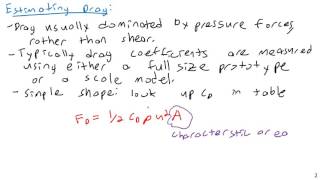 Estimating Drag:
- Drag usually dominated by pressure forces
rather than shear.
- Typically drag coefficients are measured
using either a full size prototype
or a scale model.
- Simple shape: look up C_D in table
F_D = 1/2 C_D ρ u² A
characteristic area
2